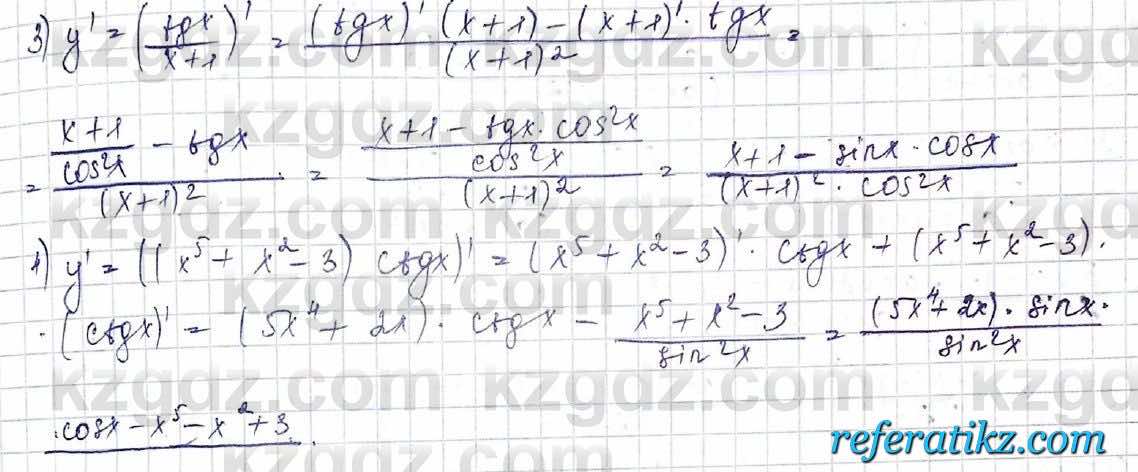 3) y' = (tgx / x+1)' = ((tgx)' (x+1) − (x+1)' · tgx) / (x+1)² =
= ((x+1)/cos²x − tgx) / (x+1)² = ((x+1 − tgx · cos²x) / cos²x) / (x+1)² = (x+1 − sinx · cosx) / ((x+1)² · cos²x)
4) y' = ((x⁵ + x² − 3) ctgx)' = (x⁵ + x² − 3)' · ctgx + (x⁵ + x² − 3) ·
· (ctgx)' = (5x⁴ + 2x) · ctgx − (x⁵ + x² − 3) / sin²x = (5x⁴ + 2x) · sinx · / sin²x
· cosx − x⁵ − x² + 3 .
kzgdz.com
referatikz.com